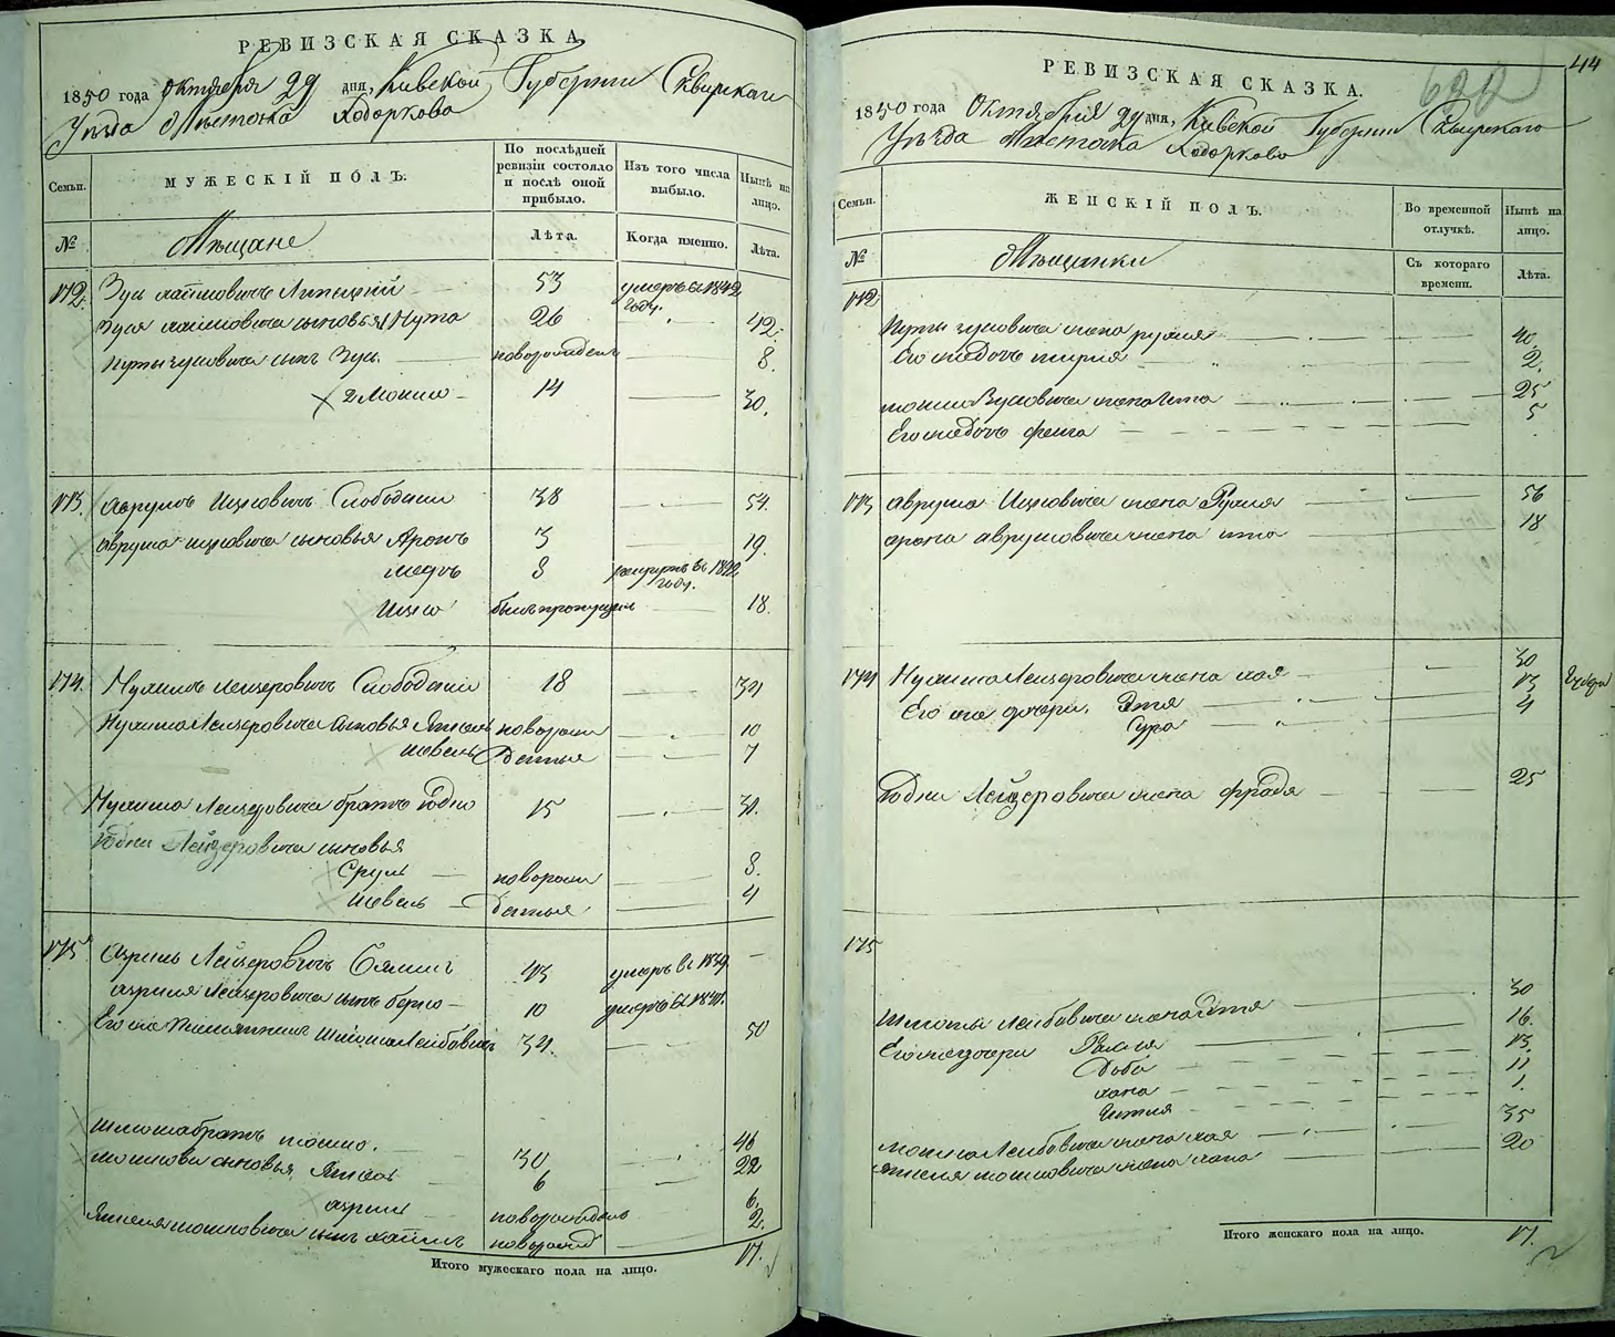 РЕВИЗСКАЯ СКАЗКА
1850 года Октября 29 дня, Кивской Губернии Сквирскаго
Уѣзда Мѣстечка Ходоркова
Семьи.
МУЖЕСКІЙ ПОЛЪ.
По послѣдней ревизіи состояло и послѣ оной прибыло.
Изъ того числа выбыло.
Нынѣ на лицо.
№
Мѣщане
Лѣта.
Когда именно.
Лѣта.
172. Зусь Хаимовичъ Липецкій 53 умеръ въ 1842 году.
Зуся Хаимовича сыновья 1 Нута 26 42.
Нуты Зусовича сынъ Зусь новорожденъ 8.
2 Мошко 14 30.
173. Аврумъ Ицковичъ Слободскій 38 54.
Аврума Ицковича сыновья Аронъ 3 19.
8 1842 году.
Ицко былъ пропущенъ 18.
174. Нухимъ Лейзеровичъ Слободскій 18 34
Нухима Лейзеровича сыновья новорож 10
Шовель денные 7
Нухима Лейзеровича братъ Юдко 15 31.
Юдки Лейзеровича сыновья
Сруль новорож 8.
Шовель денные 4
175 Азриль Лейзеровичъ 43 умеръ въ 1839
Азриля Лейзеровича сынъ Берко 10 умеръ въ 1841.
Его же племянникъ Шлиома Лейбовичъ 34. 50
Шлиома братъ Мошко. 30 46
Мошкови сыновья 6 22
Азриль новорожденъ 6.
Мошковича сынъ Хаимъ новорожд 2.
Итого мужескаго пола на лицо. 17.
44
РЕВИЗСКАЯ СКАЗКА.
1850 года Октября 29 дня, Кивской Губерніи Сквирскаго
Уѣзда Мѣстечка Ходоркова
Семьи.
ЖЕНСКІЙ ПОЛЪ.
Во временной отлучкѣ.
Нынѣ на лицо.
№
Мѣщанки
Съ котораго времени.
Лѣта.
172
Нуты Зусовича жена Рухля 40.
Его же дочь 2.
Мошка Зусовича жена 25
Его же дочь Фейга 5
173 Аврума Ицковича жена Рухля 56
Арона Аврумовича жена Ита 18
174 Нухима Лейзеровича жена Хая 30
Его же дочери, Этя 13
Сура 4
Юдки Лейзеровича жена Фрадя 25
175
Шлиомы Лейбовича жена 30
Его же дочери 16.
Доба 13.
Хана 11
1.
Мошка Лейбовича жена Хая 35
Мошковича жена Хана 20
Итого женскаго пола на лицо. 17.